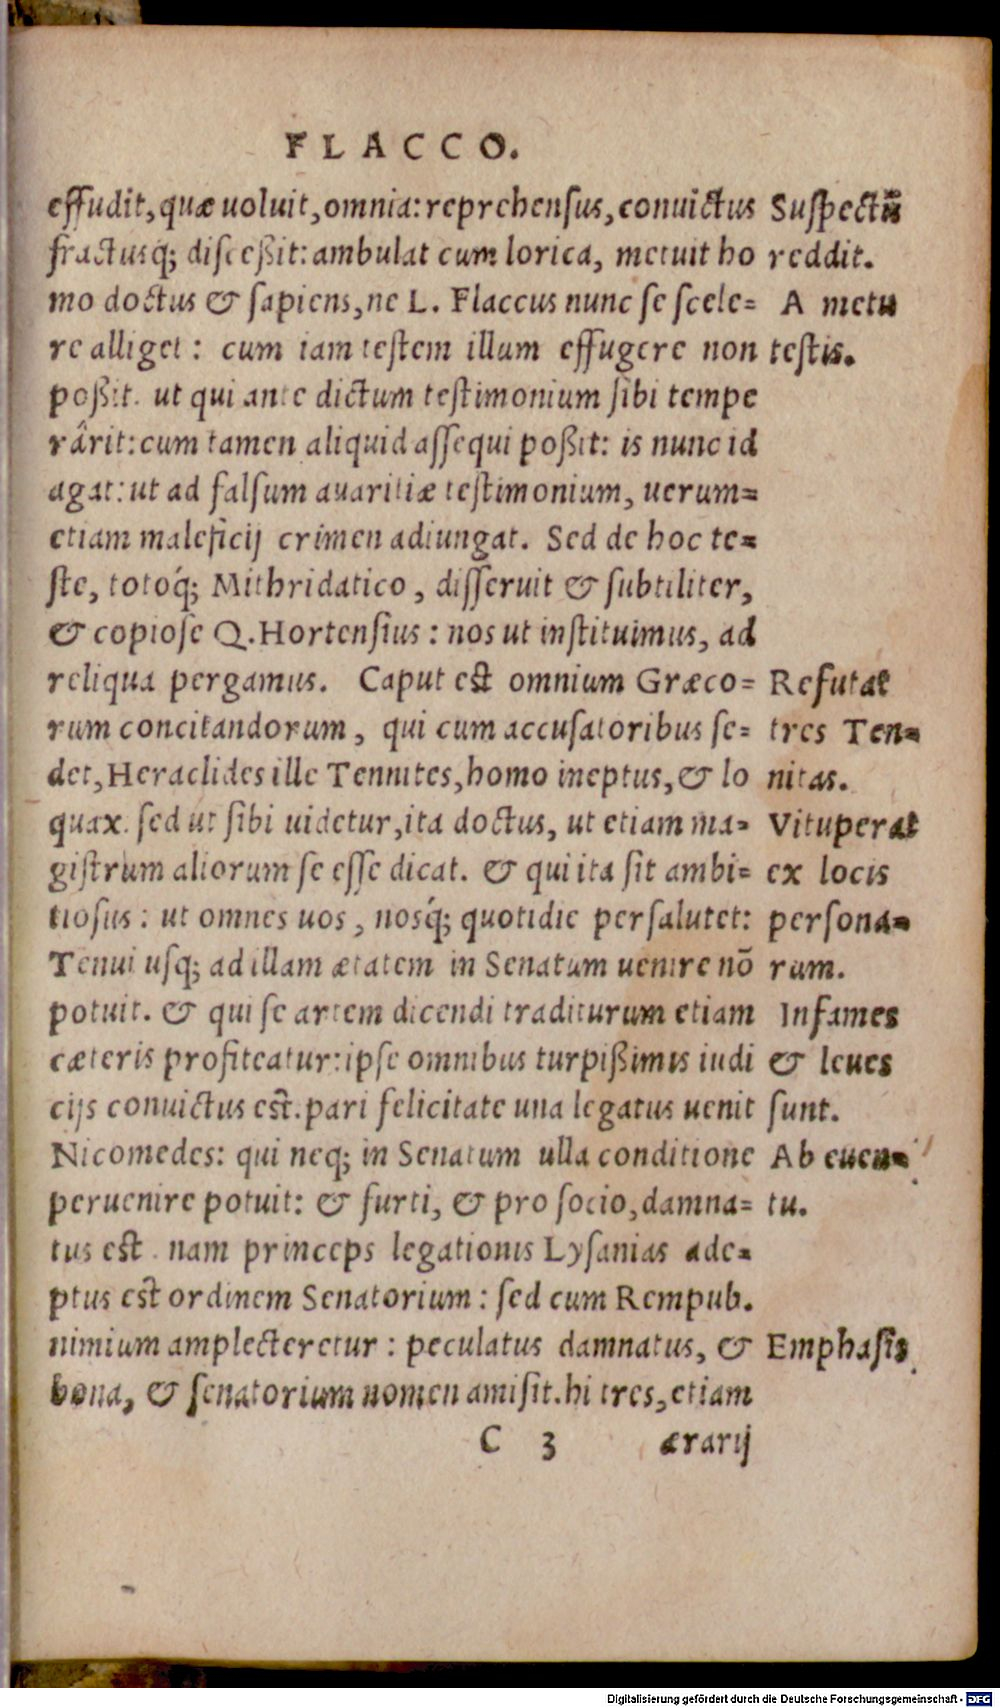 FLACCO.
effudit, quæ uoluit, omnia: reprehensus, conuictus
fractusq́; disceßit: ambulat cum lorica, metuit ho
mo doctus & sapiens, ne L. Flaccus nunc se scele=
re alliget: cum iam testem illum effugere non
poßit. ut qui ante dictum testimonium sibi tempe
rârit: cum tamen aliquid assequi poßit: is nunc id
agat: ut ad falsum auaritiæ testimonium, uerum=
etiam maleficij crimen adiungat. Sed de hoc te=
ste, totoq́; Mithridatico, disseruit & subtiliter,
& copiose Q. Hortensius: nos ut instituimus, ad
reliqua pergamus. Caput est omnium Græco=
rum concitandorum, qui cum accusatoribus se=
det, Heraclides ille Temnites, homo ineptus, & lo
quax. sed ut sibi uidetur, ita doctus, ut etiam ma=
gistrum aliorum se esse dicat. & qui ita sit ambi=
tiosus: ut omnes uos, nosq́; quotidie persalutet:
Tenui usq; ad illam ætatem in Senatum uenire nō
potuit. & qui se artem dicendi traditurum etiam
cæteris profiteatur: ipse omnibus turpißimis iudi
cijs conuictus est. pari felicitate una legatus uenit
Nicomedes: qui neq; in Senatum ulla conditione
peruenire potuit: & furti, & pro socio, damna=
tus est. nam princeps legationis Lysanias ade=
ptus est ordinem Senatorium: sed cum Rempub.
nimium amplecteretur: peculatus damnatus, &
bona, & senatorium nomen amisit. hi tres, etiam
C 3 ærarij
Suspectū
reddit.
A metu
testis.
Refutat
tres Ten=
nitas.
Vituperat
ex locis
persona=
rum.
Infames
& leues
sunt.
Ab euen=
tu.
Emphasis
Digitalisierung gefördert durch die Deutsche Forschungsgemeinschaft - DFG